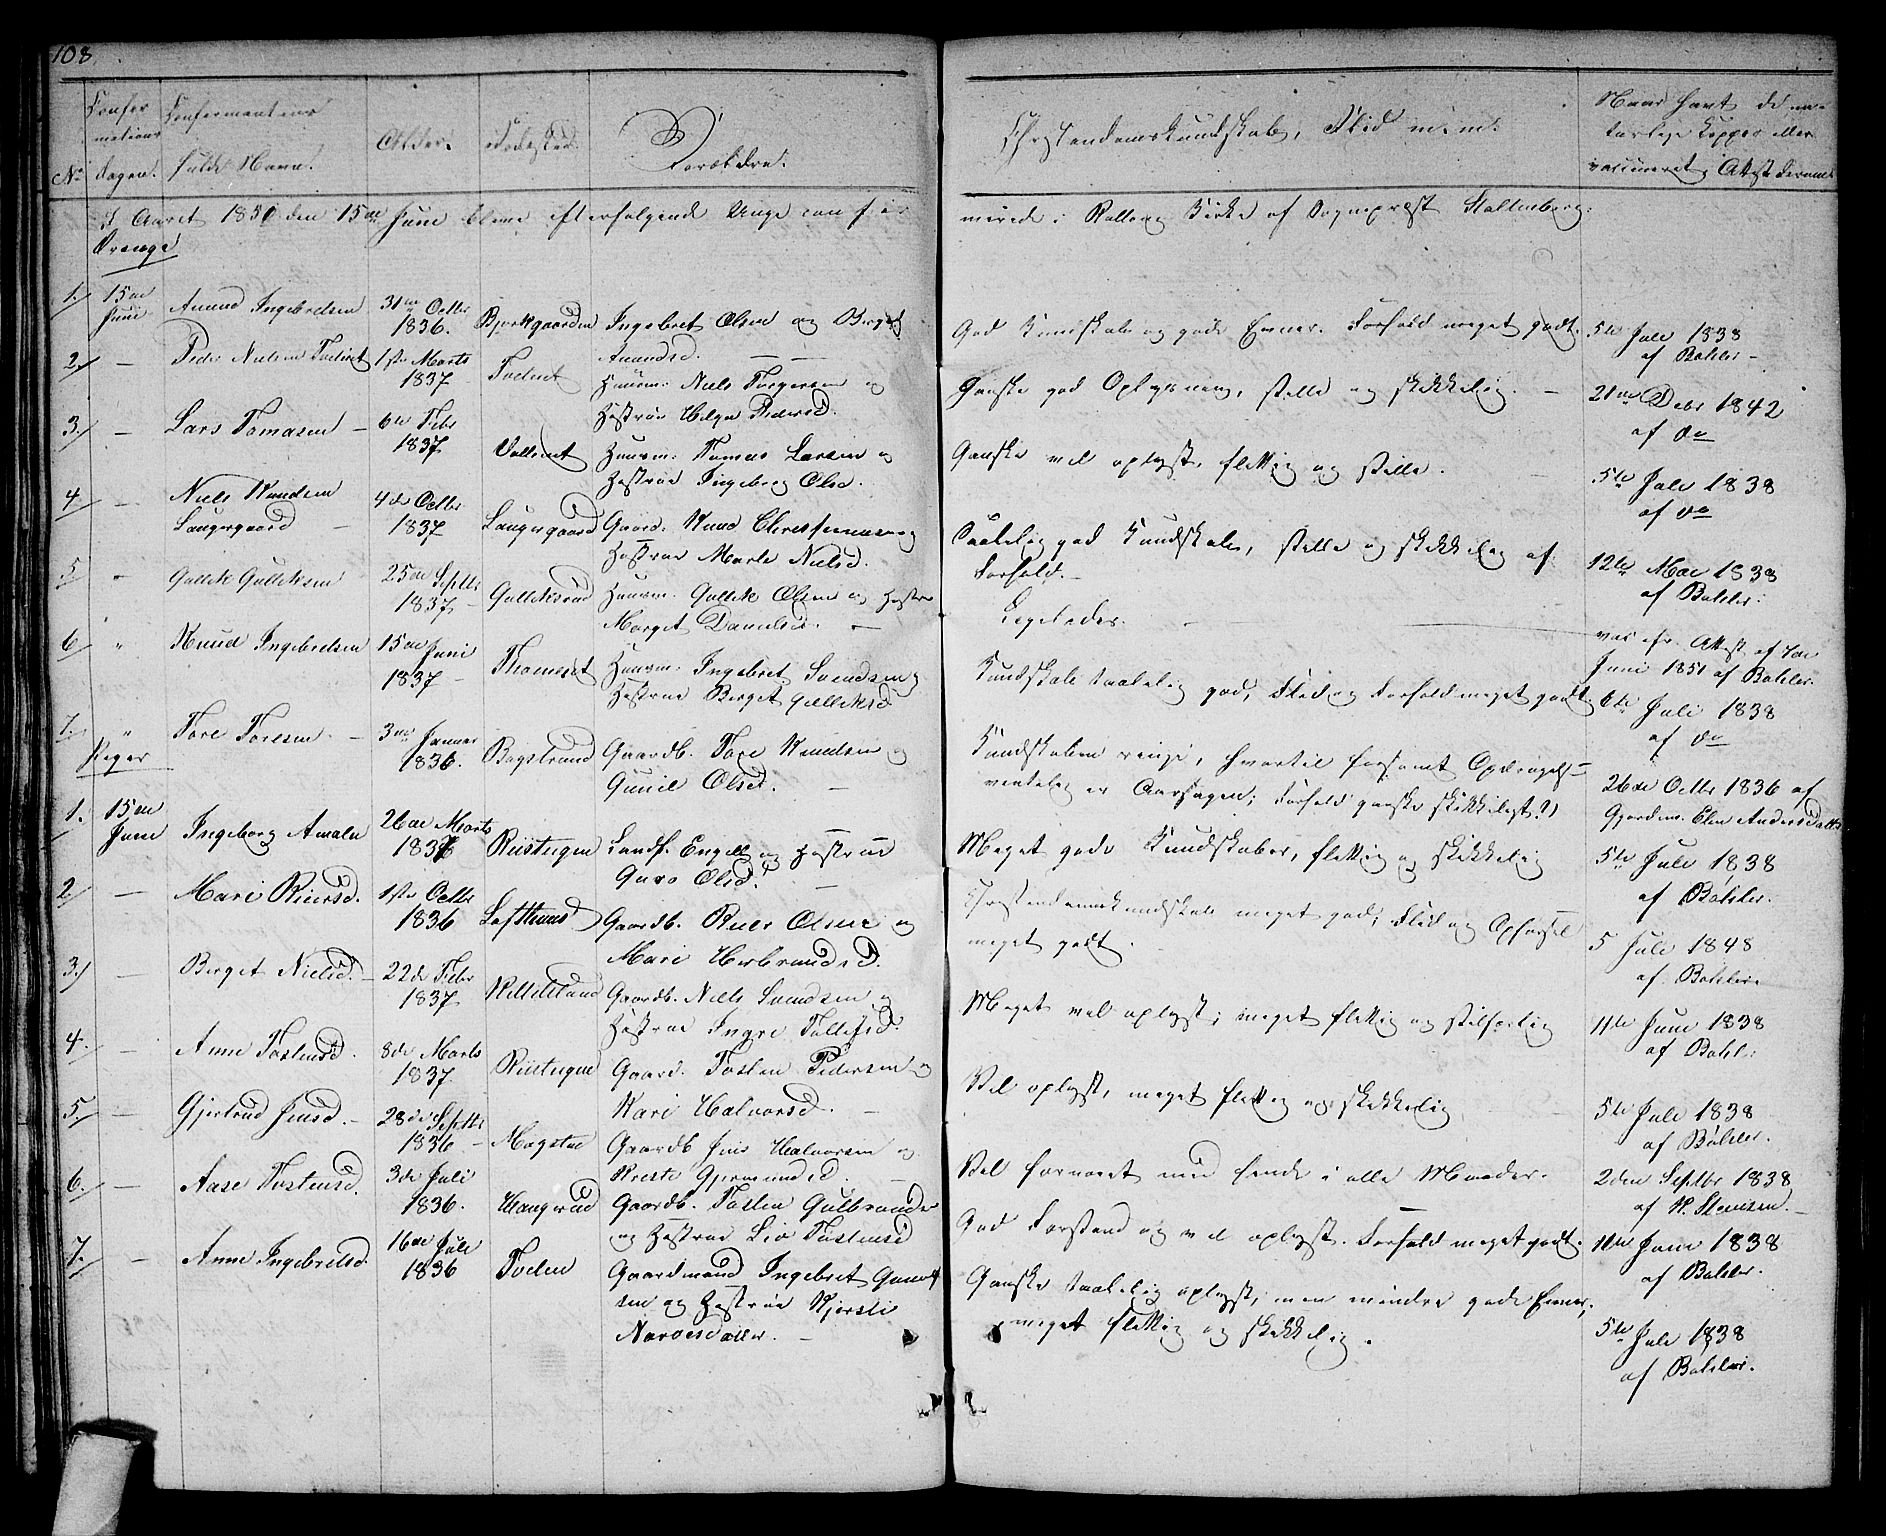 108
No
Confermationsdagen.
Confermantens fulde Navn.
Alder.
Fødested
Forældre.
Christendomskundskab, Flid m:m:
Naar havt de naturlige Kopper eller vaccineret, Attest derom
I Aaret 1851 den 15de Juni bleve efterfølgende Unge confirmerede i Rollag Kirke af Sognepræst Stoltenberg:
Drenge
1./ 15de Juni Amund Ingebretsen 31te Octbr 1836. Bjørkgaarden Ingebret Olsen og Berget Amundsd. God Kundskab og gode Evner. Forhold meget godt. 5te Juli 1838 af Bøhler
2./ — Peder Nielsen 1ste Marts 1837 Huusm: Niels Torgersen og Hustrue Helga Pedersd. Ganske god Oplysning, stille og skikkelig. — 21de Debr 1842 af do
3./ — Lars Tomasen — 6te Febr 1837 Huusm: Tomas Larsen og Hustrue Ingeborg Olsd. Ganske vel oplyst, flittig og stille. 5te Juli 1838 af do
4./ — Niels Knudsen Laugergaard — 4de Octbr 1837 Laugergaard Gaard. Knud Christensen og Hustrue Marte Nielsd. Taalelig god Kundskab, stille og skikkelig af Forhold. — 12te Mai 1838 af Bøhler.
5 " Gullek Gulleksen 25de Septbr 1837 Gulleksrud Huusm. Gullek Olsen og Hustrue Marget Danielsd. — Ligeledes. vac. efr. Attest af Juni 1851 af Bøhler
6 " Knud Ingebretsen 15de Juni 1837 Thomeset Huusm: Ingebret Svendsen og Hustrue Berget Gulleksd Kundskab taalelig god, Flid og Forhold meget godt 6te Juli 1838 af do
7. " Tore Toresen — 3die Januar 1836. Bagstrand Gaardb. Tore Knudsen og Gunil Olsd. — Kundskaben ringe, hvortil forsømt Opdragelse ventelig er Aarsagen; Forhold ganske skikkeligt. 26de Octbr 1836 af Gjordem. Elen Andersdatter
Piger
1. 15de June Ingeborg Amalie 26de Marts 1837 Riistuguen Landh. Engell og Hustrue Guro Olsd. — Meget gode Kundskaber, flittig og skikkelig 5te Juli 1838 af Bøhler.
2/ — Mari Reiersd. 1ste Octbr 1836 Lofthuus Gaardb. Reier Olsen og Mari Herbrandsd. Christendomskundskab meget god; Flid og Opførsel meget godt. 5 Juli 1848 af Bøhler.
3./ — Berget Nielsd. — 22de Febr 1837. Killelstand Gaardb. Niels Svendsen og Hustrue Ingre Tollefsd. Meget vel oplyst; meget flittig og stilfærdig 11te Juni 1838 af Bøhler
4./ — Anne Tostensd. 8de Marts 1837. Riistuguen Gaard. Tosten Pedersen og Kari Halvorsd. — Vel oplyst, meget flittig og skikkelig 5te Juli 1838 af Bøhler.
5./ — Gjertrud Jensd. — 28de Septbr 1836 — Mogstue Gaardb Jens Halvorsen og Kirsti Gjermundsd. — Vel fornøiet med hende i alle Maader. 2den Septbr 1838 af K. Steensen. —
6./ — Aase Tostensd. 3de Juli 1836. Haugerud Gaardb. Tosten Gulbrandsen og Hustrue Liv Tostensd God Forstand og vel oplyst. Forhold meget godt. 11te June 1838 af Bøhler.
7./ — Anne Ingebretsd. 16de Juli 1836 Toelen Gaardmand Ingebret Gunulfsen og Hustrue Kjersti Narvesdatter. — Ganske taalelig oplyst, men mindre gode Evner; meget flittig og skikkelig. 5te Juli 1838 af Bøhler.